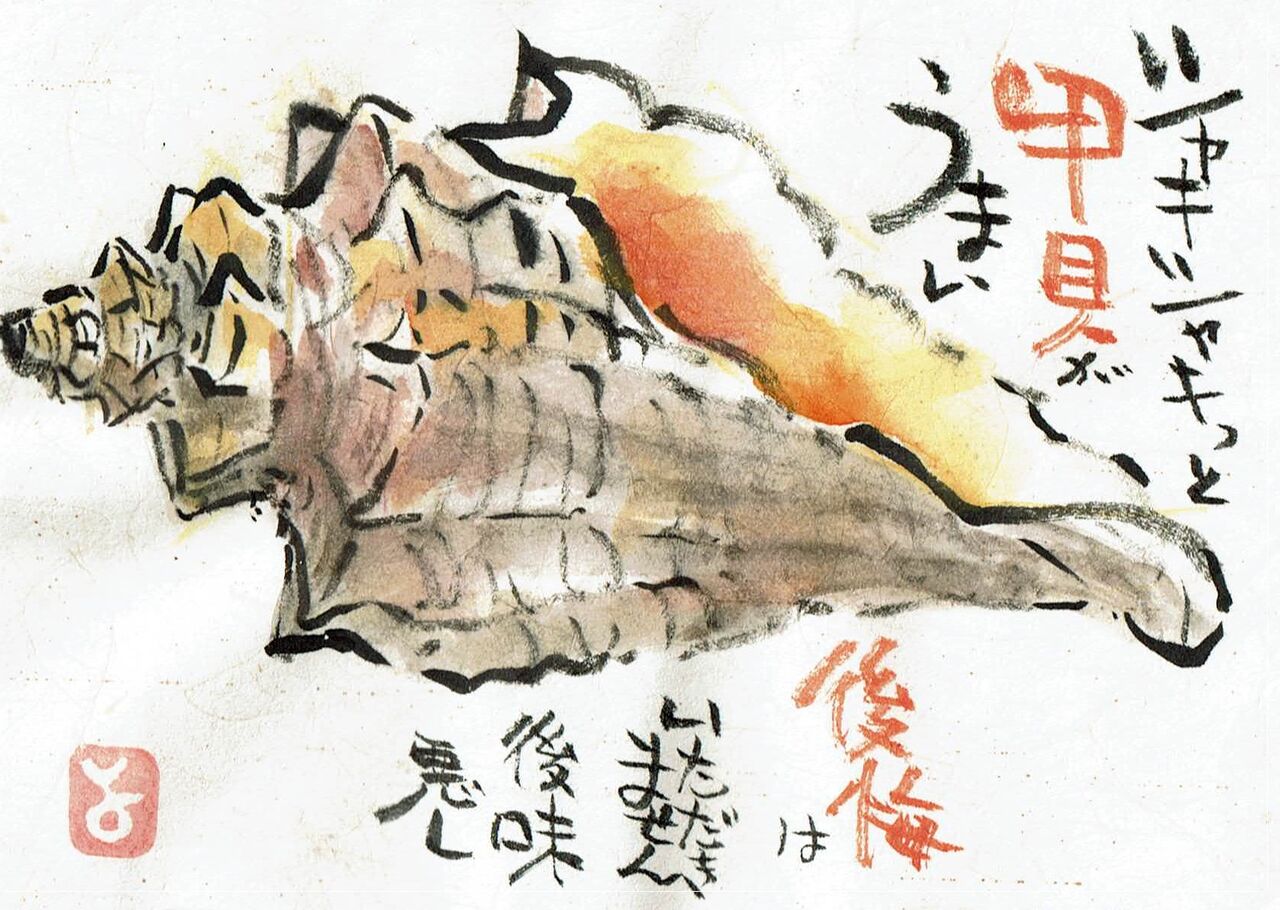 シャキシャキっと
甲貝が
うまい
後悔は
いただき
ません
後味
悪し